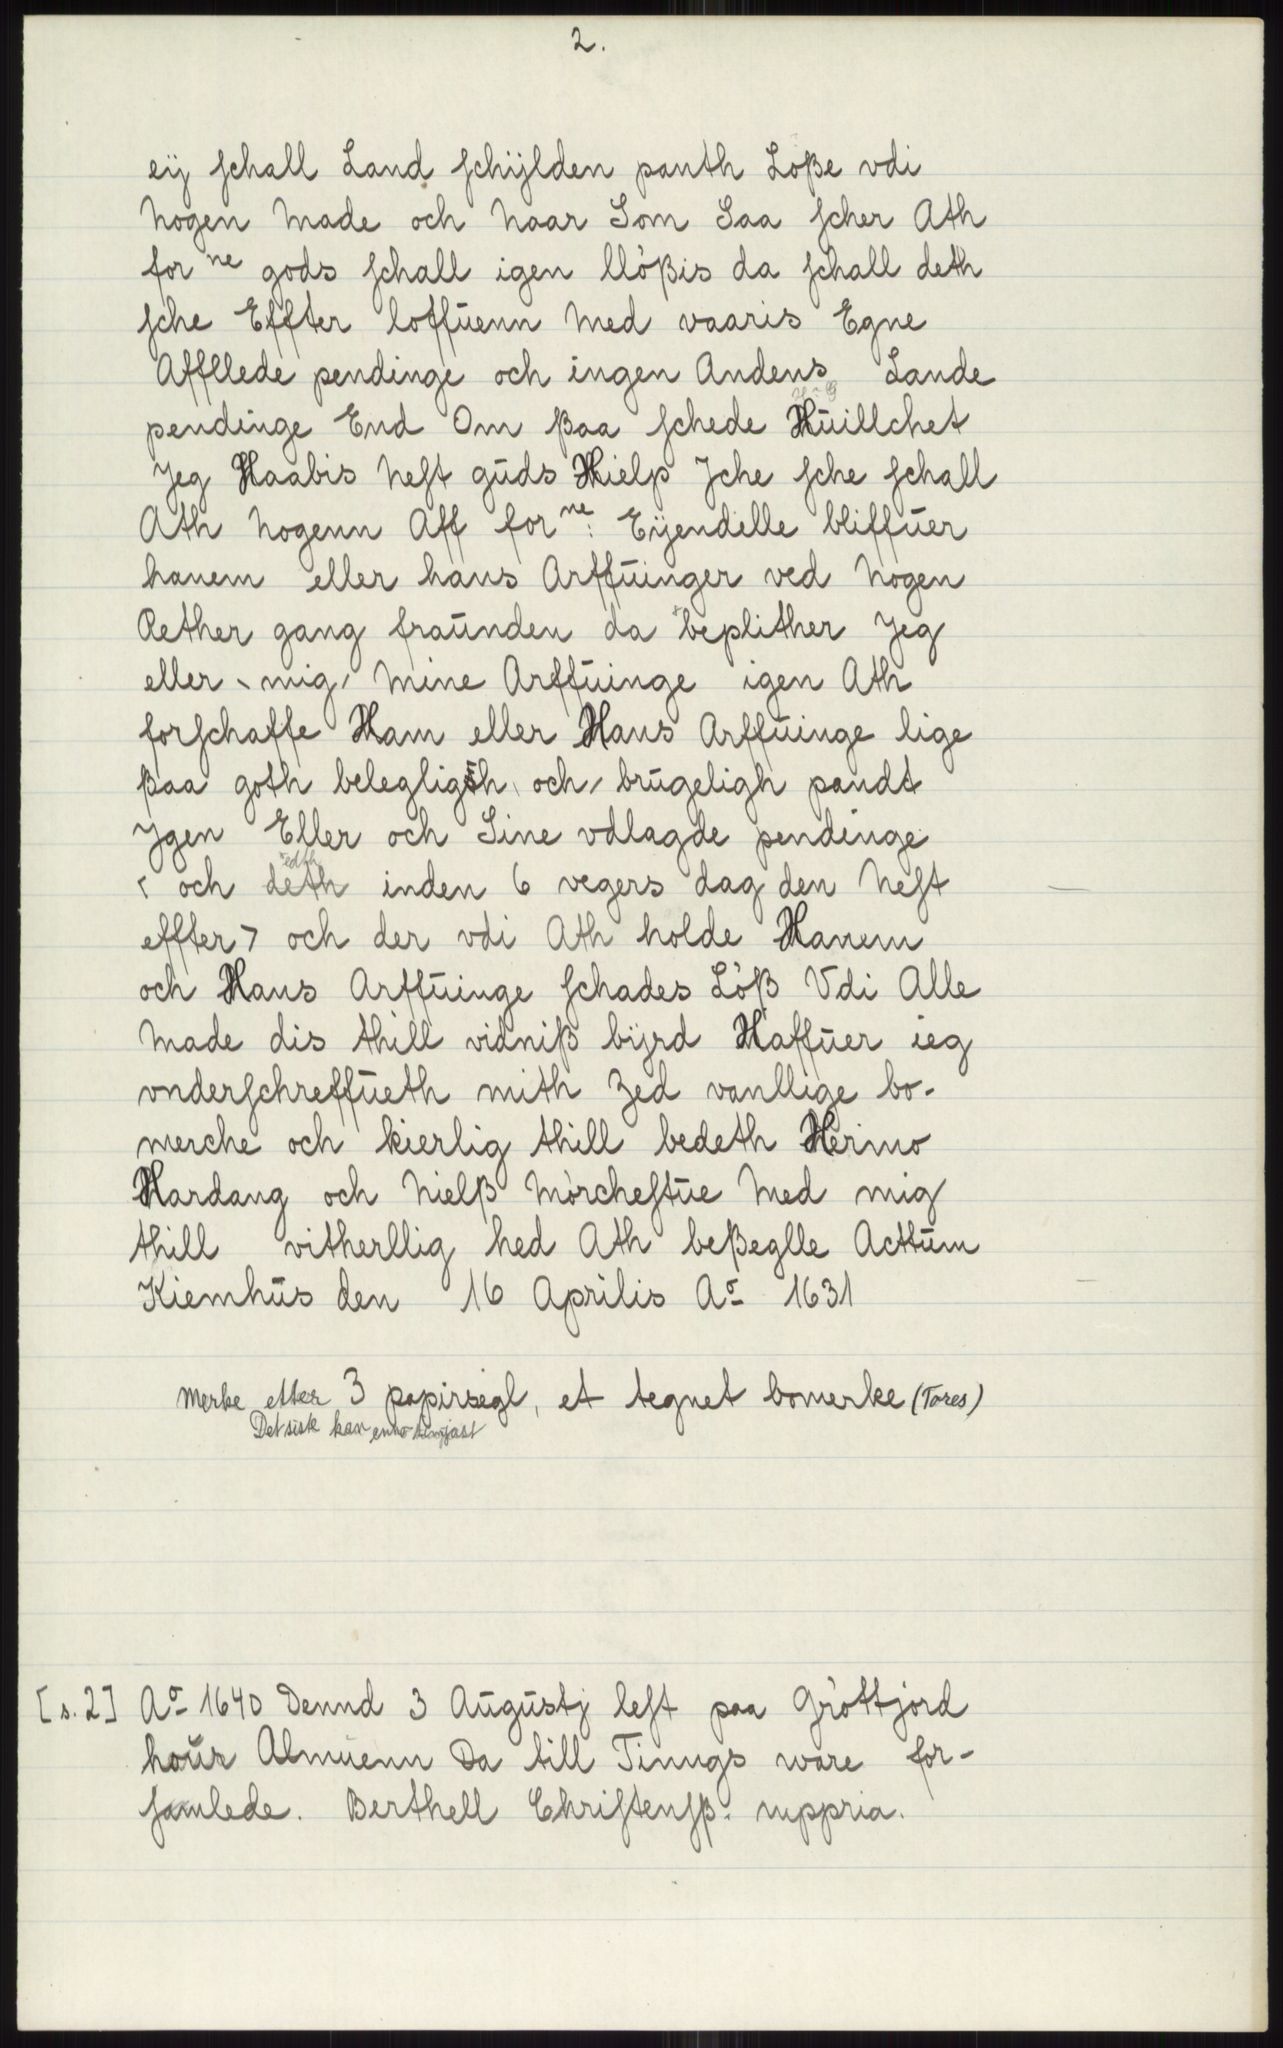 2.
eÿ schall Land schÿlden panth Loße vdi
Nogen Made och Naar Som Saa scher Ath
for ne gods schall igen llößis da schall deth
sche Effter loffuenn Med vaaris Egne
Affllede pendinge och ingen Andens Lande
pendinge End Om ßaa schede Huillchet
Jeg Haabis Nest guds Hielp Jche sche schall
Ath Nogenn Aff for ne: Eÿendelle bliffuer
hanem eller hans Arffuinger ved Nogen
Rether gang fraunden da beplither Jeg
eller mig, Mine Arffuinge igen Ath
forschaffe Ham eller Hans Arffuinge lige
ßaa goth belegligth och brugeligh pandt
Jgen Eller och Sine vdlagde pendinge
< och deth inden 6 vegers dag den Nest
effter > och der vdi Ath holde Hanem
och Hans Arffuinge schades Löß Vdi Alle
Made dis thill vidniß bÿrd Haffuer ieg
vnderschreffueth mith Zed vanllige bo-
merche och kierlig thill bedeth Herimo
Hardang och Nielß Mörchestue Med mig
thill vitherllig hed Ath beßeglle Acttum
Kiemhus den 16 Aprilis Ao 1631
Merke etter 3 papirsegl, et tegnet bomerke (Tores)
Det sisk kan enno
[s. 2] Ao 1640 Dennd 3 Augustj lest paa Gröttjord
hour Almuenn Da till Tinngs ware for-
samlede. Berthell Christensß. mppria.